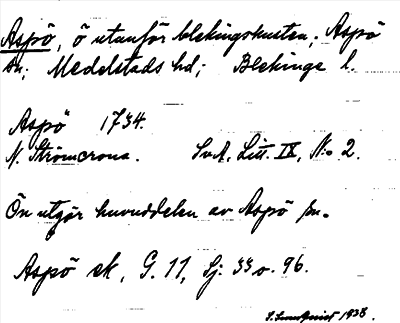 Aspö, ö utanför blekingskusten; Aspö
sn. Medelstads hd; Blekinge l.
Aspö 1734.
N. Strömcrona. SvA, Litt. IX, N:o 2.
Ön utgör huvuddelen av Aspö sn.
Aspö sk, G. 11, Sj: 33 o. 96.
1938.